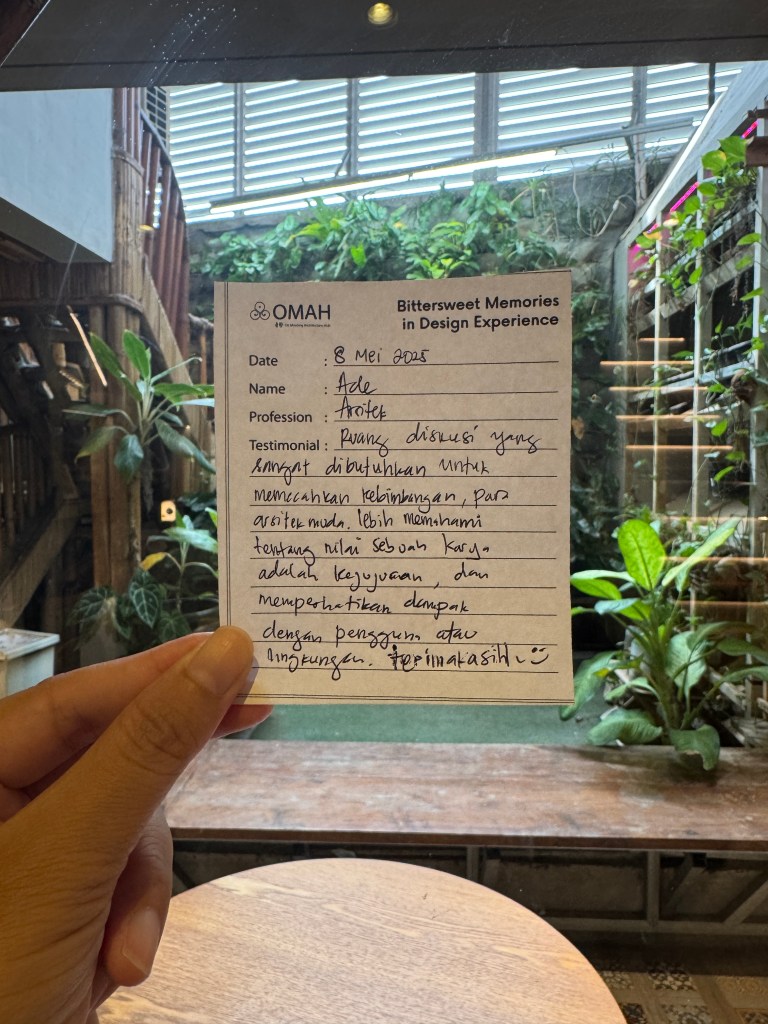 OMAH
Bittersweet Memories
in Design Experience
Date : 8 Mei 2025
Name : Ade
Profession : Arsitek
Testimonial : Ruang diskusi yang
sangat dibutuhkan untuk
memecahkan kebimbangan, para
arsitek muda. lebih memahami
tentang nilai sebuah karya
adalah kejujuran, dan
memperhatikan dampak
dengan pengguna atau
lingkungan. terimakasih